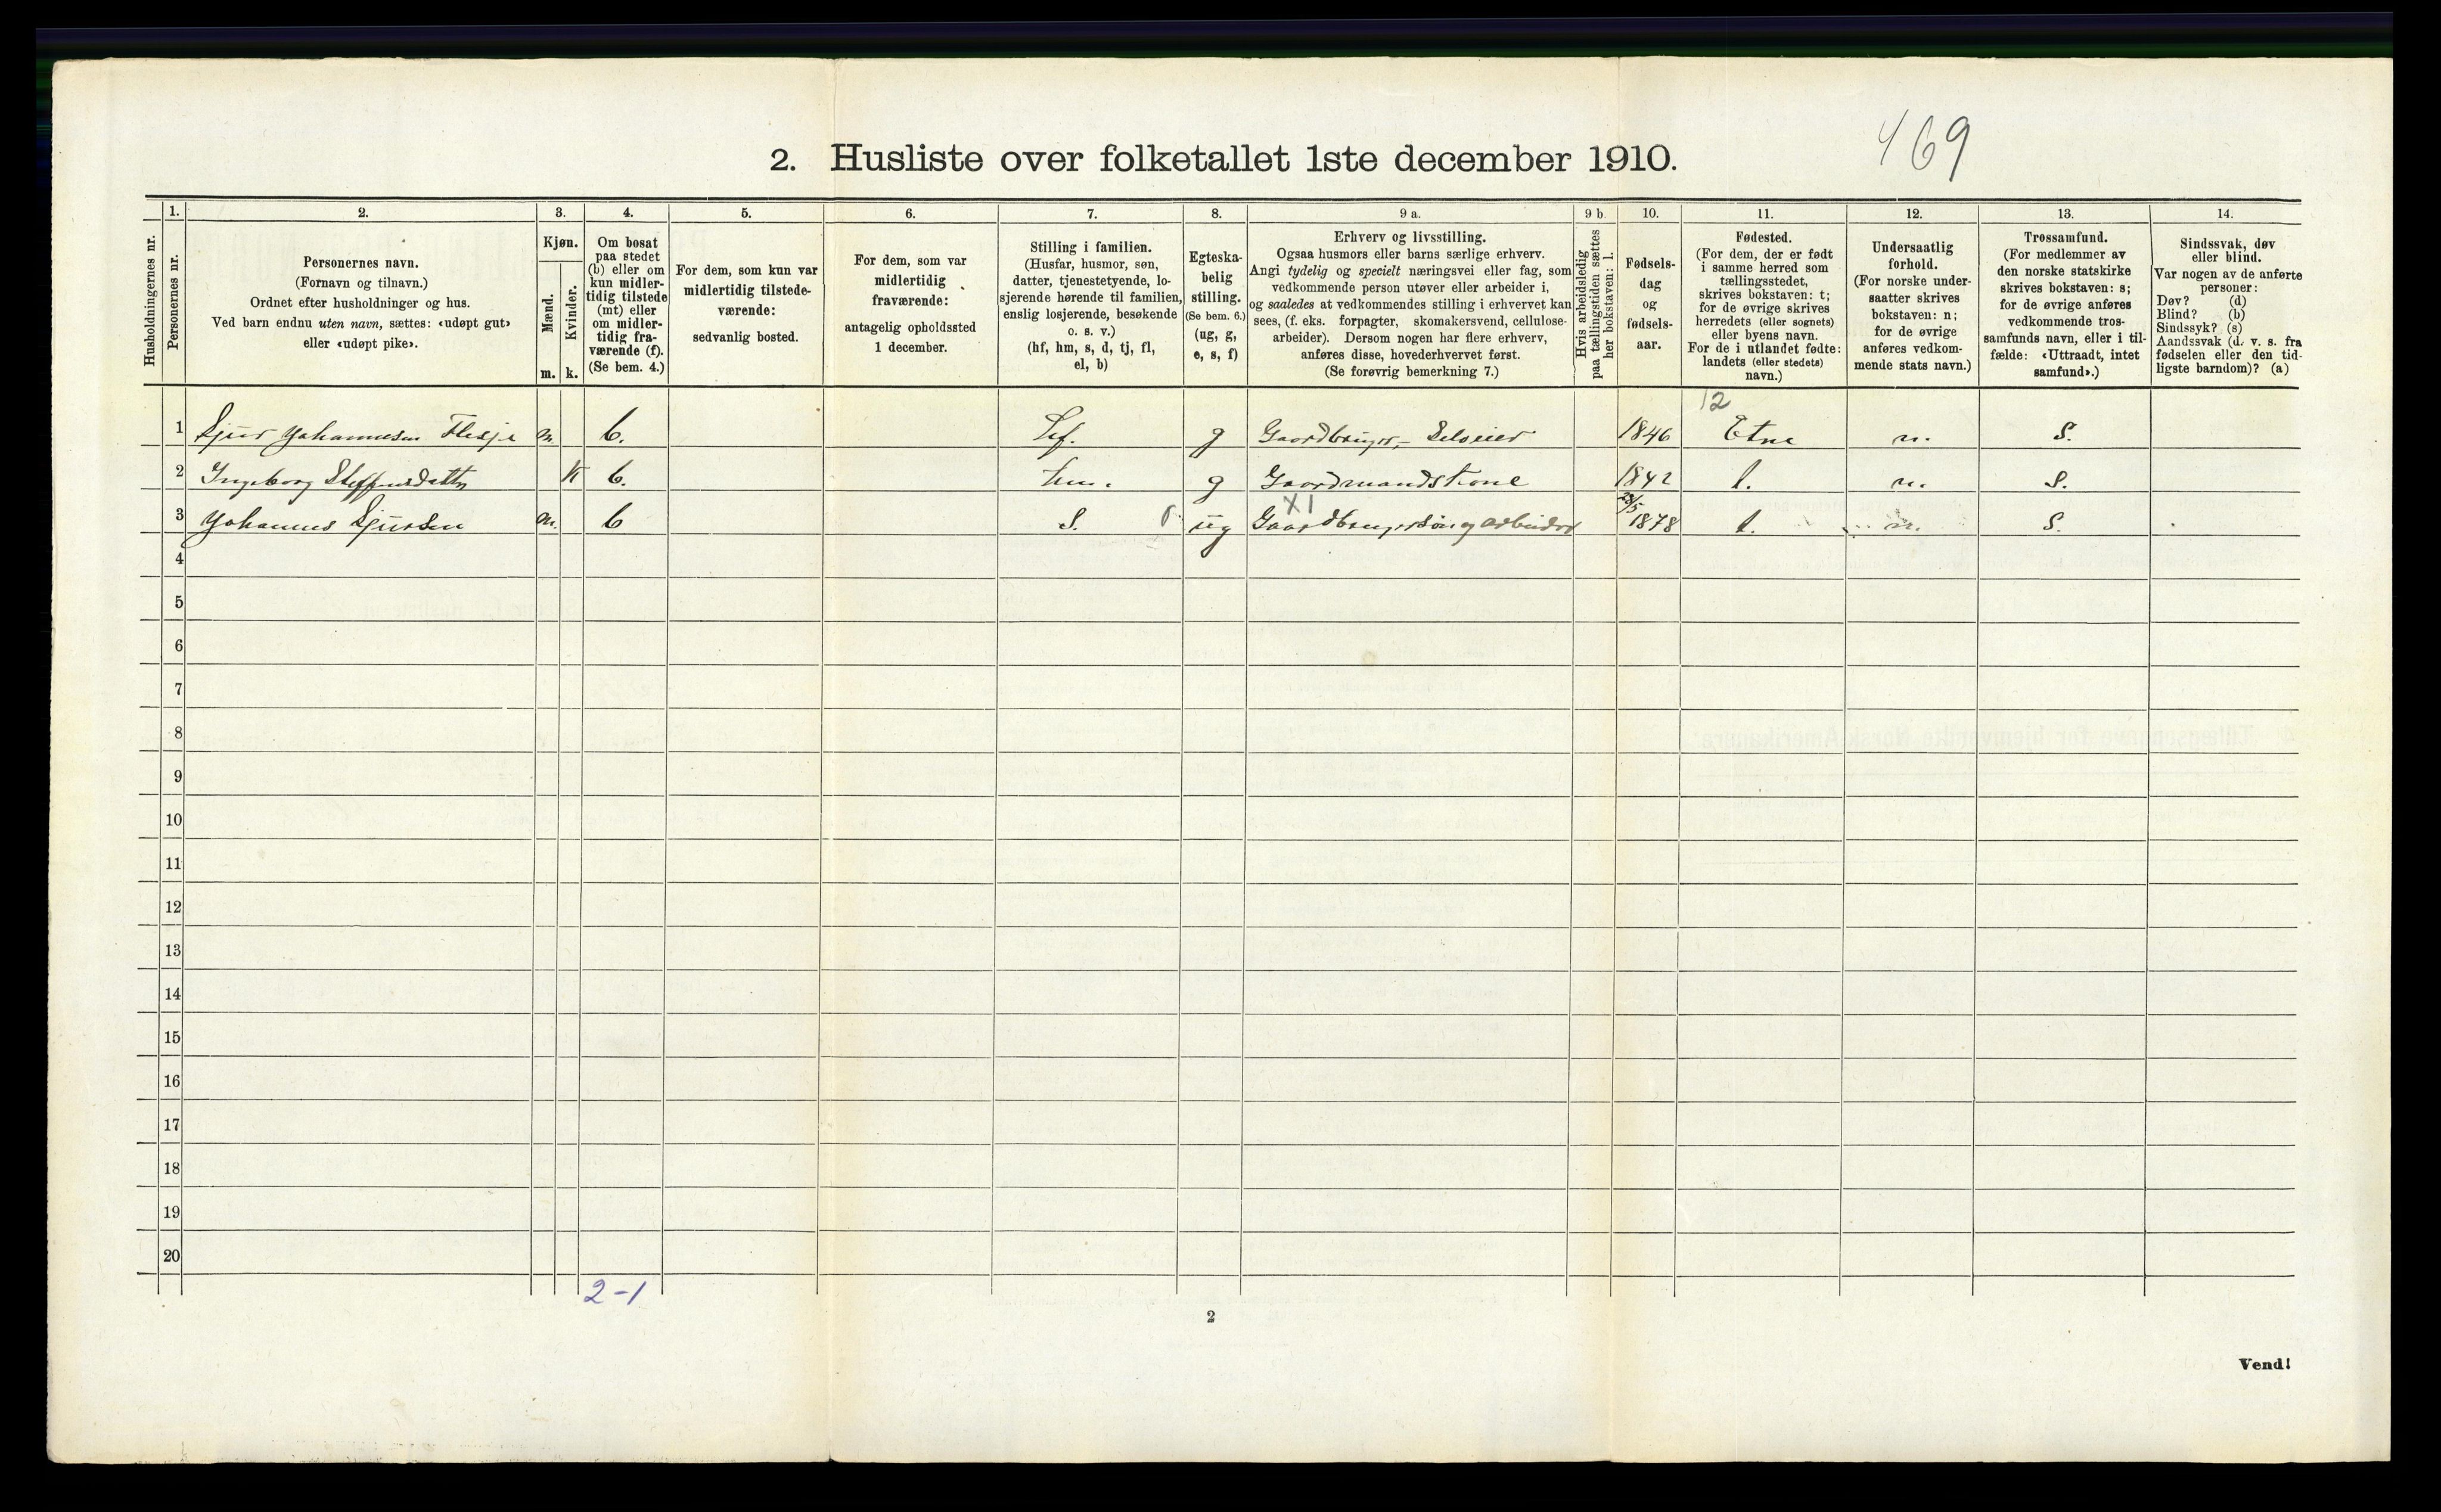 469
2. Husliste over folketallet 1ste december 1910.
Husholdningernes nr.
1.
Personernes nr.
2.
Personernes navn.
(Fornavn og tilnavn.)
Ordnet efter husholdninger og hus.
Ved barn endnu uten navn, sættes: «udøpt gut»
eller «udøpt pike».
3.
Kjøn.
Mænd.
Kvinder.
m. k.
4.
Om bosat
paa stedet
(b) eller om
kun midler-
tidig tilstede
(mt) eller
om midler-
tidig fra-
værende (f).
(Se bem. 4.)
5.
For dem, som kun var
midlertidig tilstede-
værende:
sedvanlig bosted.
6.
For dem, som var
midlertidig
fraværende:
antagelig opholdssted
1 december.
7.
Stilling i familien.
(Husfar, husmor, søn,
datter, tjenestetyende, lo-
sjerende hørende til familien,
enslig losjerende, besøkende
o. s. v.)
(hf, hm, s, d, tj, fl,
el, b)
8.
Egteska-
belig
stilling.
(Se bem. 6.)
(ug, g,
e, s, f)
9 a.
Erhverv og livsstilling.
Ogsaa husmors eller barns særlige erhverv.
Angi tydelig og specielt næringsvei eller fag, som
vedkommende person utøver eller arbeider i,
og saaledes at vedkommendes stilling i erhvervet kan
sees, (f. eks. forpagter, skomakersvend, cellulose-
arbeider). Dersom nogen har flere erhverv,
anføres disse, hovederhvervet først.
(Se forøvrig bemerkning 7.)
9 b.
Hvis arbeidsledig
paa tællingstiden sættes
her bokstaven: l.
10.
Fødsels-
dag
og
fødsels-
aar.
11.
Fødested.
(For dem, der er født
i samme herred som
tællingsstedet,
skrives bokstaven: t;
for de øvrige skrives
herredets (eller sognets)
eller byens navn.
For de i utlandet fødte:
landets (eller stedets)
navn.)
12.
Undersaatlig
forhold.
(For norske under-
saatter skrives
bokstaven: n;
for de øvrige
anføres vedkom-
mende stats navn.)
13.
Trossamfund.
(For medlemmer av
den norske statskirke
skrives bokstaven: s;
for de øvrige anføres
vedkommende tros-
samfunds navn, eller i til-
fælde: «Uttraadt, intet
samfund».)
14.
Sindssvak, døv
eller blind.
Var nogen av de anførte
personer:
Døv? (d)
Blind? (b)
Sindssyk? (s)
Aandssvak (d. v. s. fra
fødselen eller den tid-
ligste barndom)? (a)
12
1 Sjur Johannesen m. b. hf. g Gaardbruger, Selveier 1846 Etne n. S.
2 Ingeborg Steffensdatter K b. hm. g Gaardmandskone 1842 t. n. S.
X1
3 Johannes Sjursen m. b S. ug Gaardbrugersøn og arbeider 1878 t. n. S.
4
5
6
7
8
9
10
11
12
13
14
15
16
17
18
19
20
2-1
2
Vend!